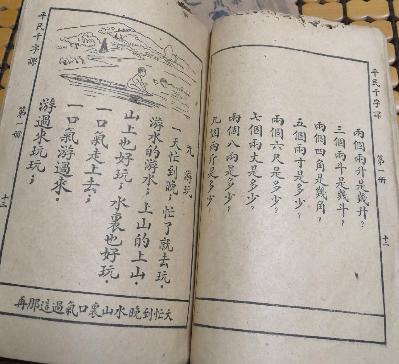 平民千字課 第一冊 十二
兩個兩升是幾升？
三個兩斗是幾斗？
兩個四角是幾角？
五個兩寸是多少？
兩個六尺是多少？
七個兩丈是多少？
兩個八兩是多少？
九個兩斤是多少？
九 游玩
一天忙到晚；忙了就去玩．
游水的游水；上山的上山．
山上也好玩；水裏也好玩．
一口氣走上去；
一口氣游過來．
游過來玩玩；
天忙到晚水山裏口氣過這那再
平民千字課 第一冊 十三